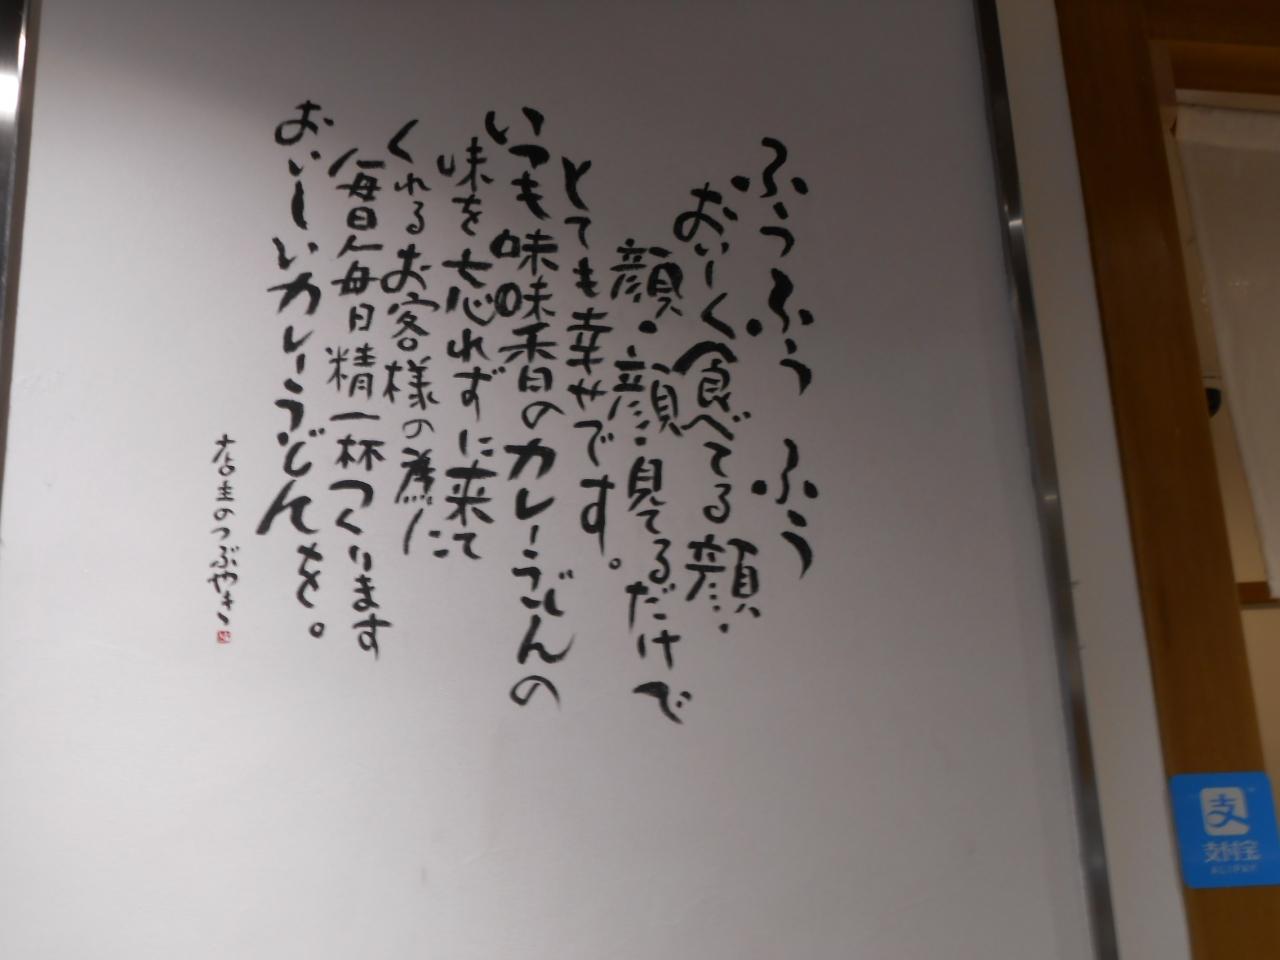 ふぅふぅ ふぅ
おいしく食べてる顔・
顔・顔・見てるだけで
とても幸せです。
いつも味味香のカレーうどんの
味を忘れずに来て
くれるお客様の為に
毎日毎日精一杯つくります
おいしいカレーうどんを。
店主のつぶやき
支付宝